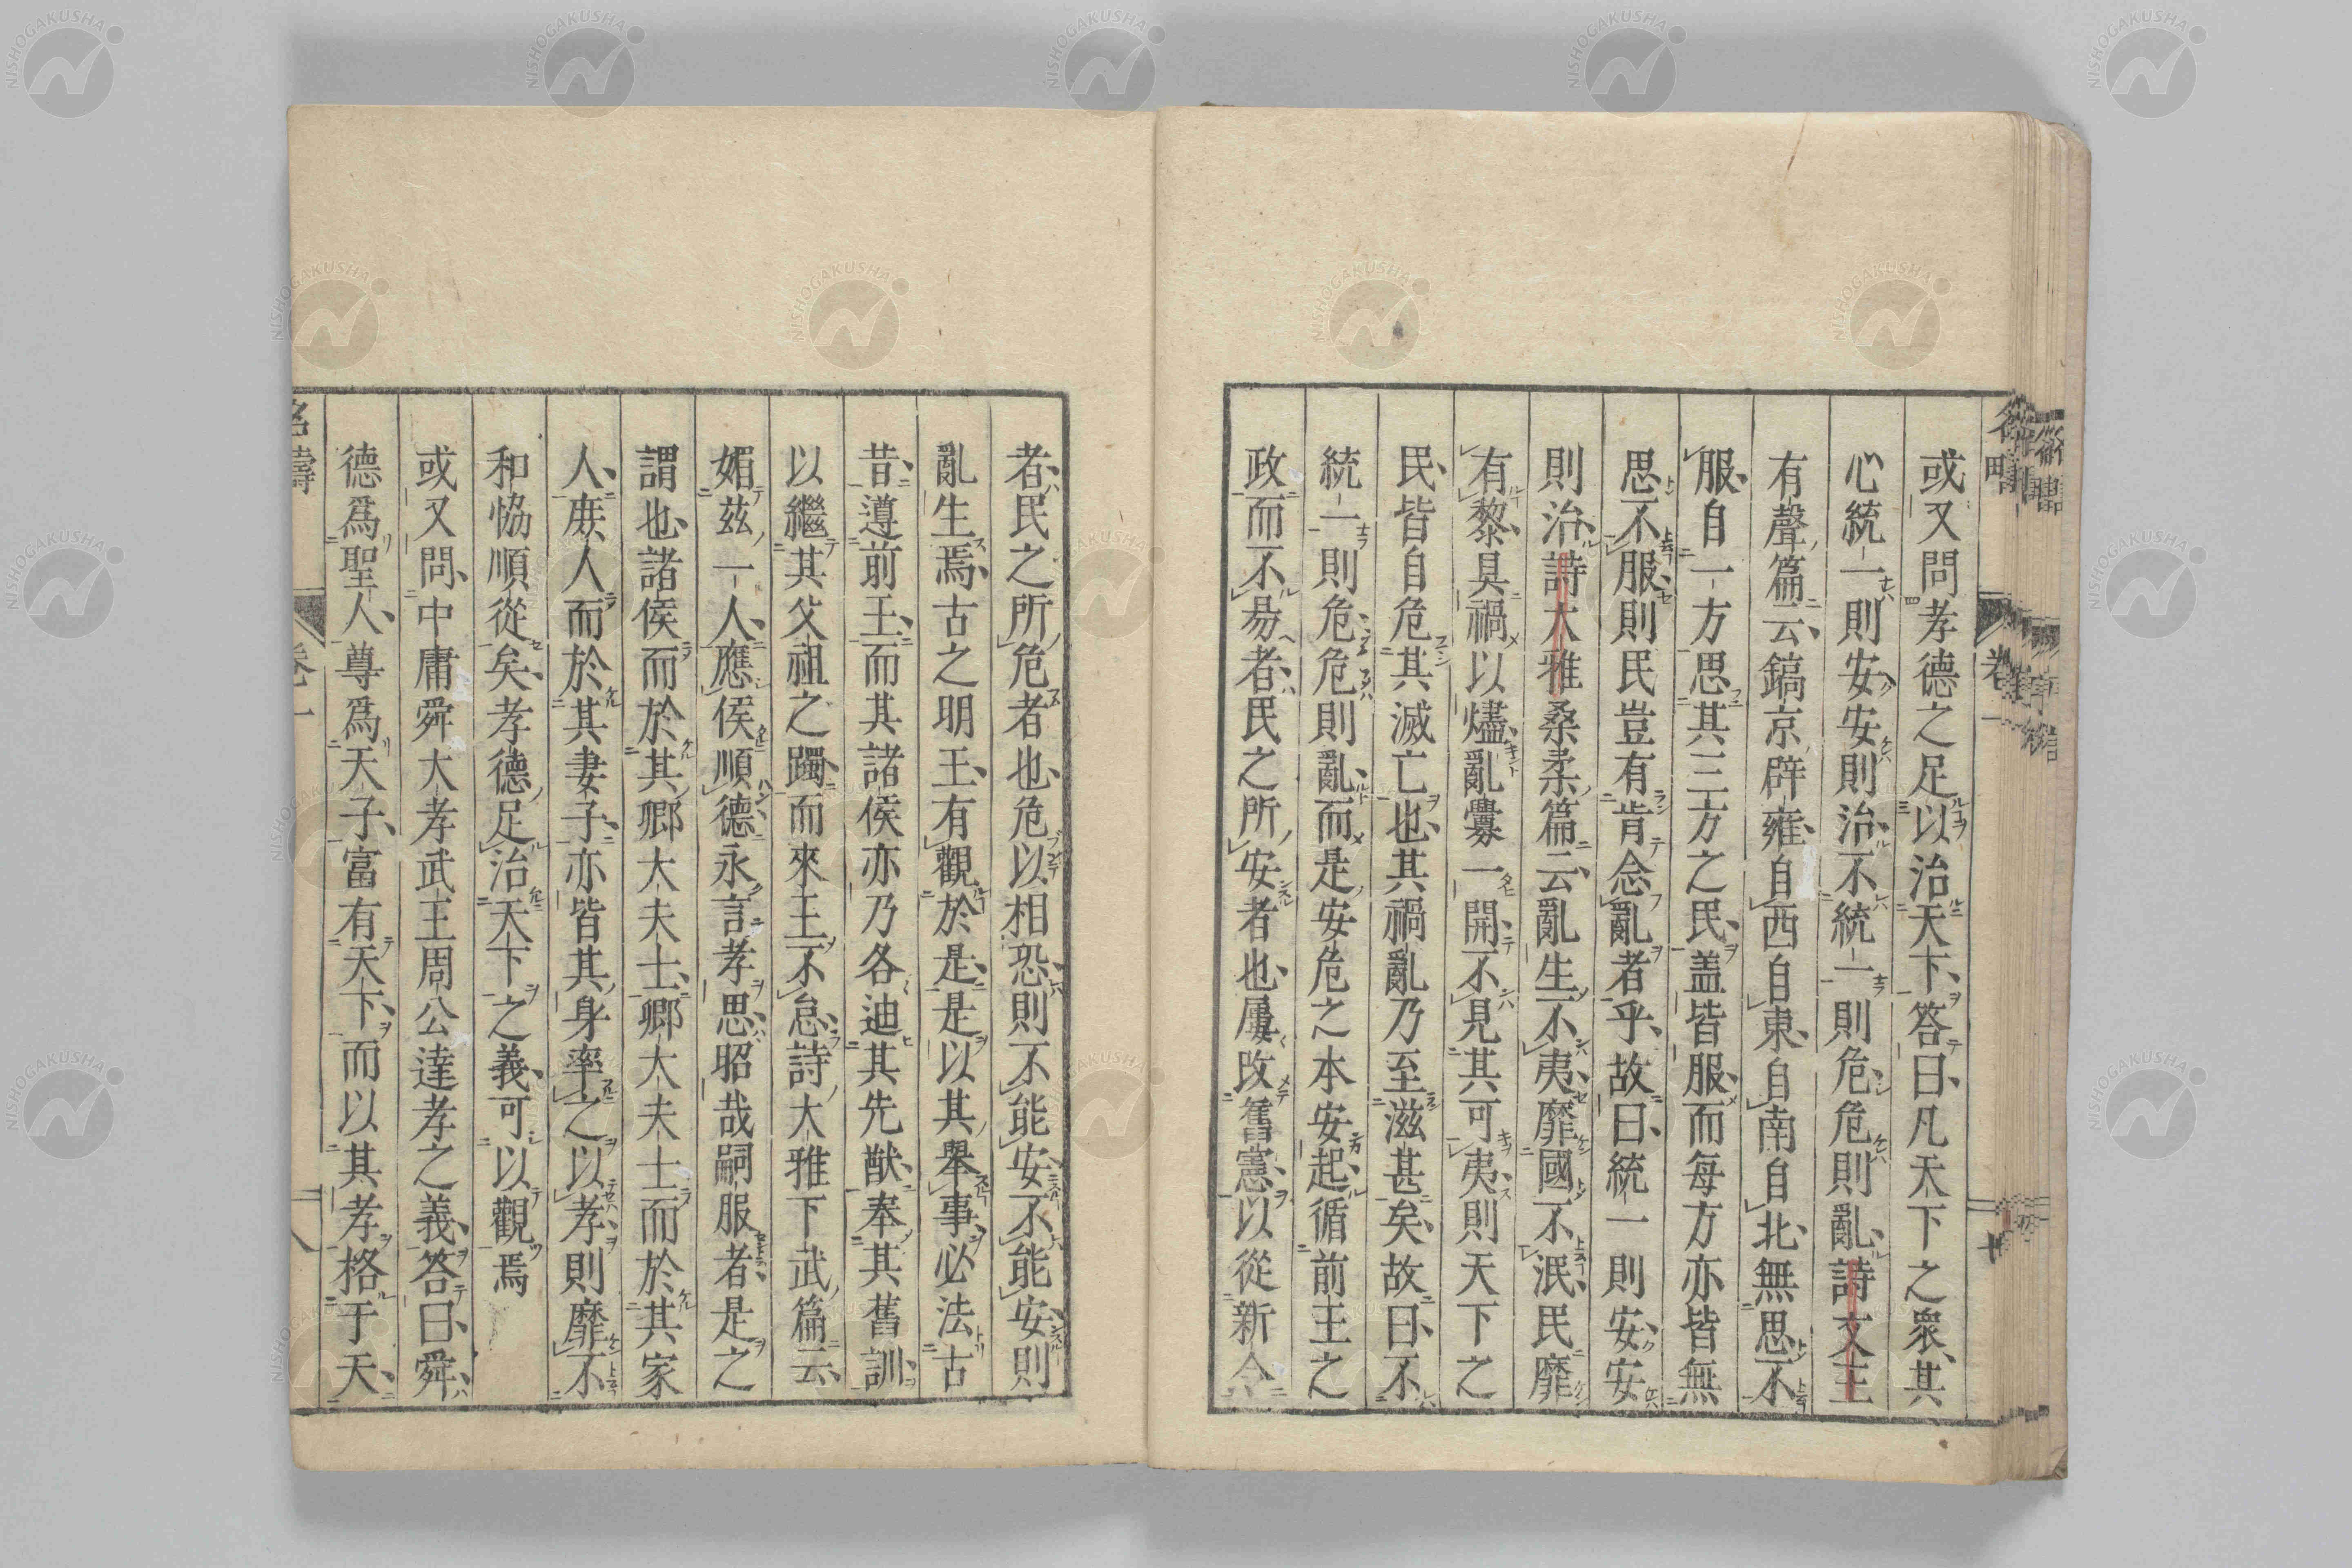 或又問孝德之足以治天下答曰凡天下之衆其
心統一則安安則治不統一則危危則亂詩文王
有聲篇云鎬京辟雍自西自東自南自北無思不
服自一方思其三方之民盖皆服而每方亦皆無
思不服則民豈有肯念亂者乎故曰統一則安安
則治詩大雅桑柔篇云亂生不夷靡國不泯民靡
有黎具禍以燼亂釁一開不見其可夷則天下之
民皆自危其滅亡也其禍亂乃至滋甚矣故曰不
統一則危危則亂而是安危之本安起循前王之
政而不易者民之所安者也屢改舊憲以從新令
者民之所危者也危以相恐則不能安不能安則
亂生焉古之明王有觀於是是以其舉事必法古
昔遵前王而其諸侯亦乃各迪其先猷奉其舊訓
以繼其父祖之躅而來王不怠詩大雅下武篇云
媚兹一人應侯順德永言孝思昭哉嗣服者是之
謂也諸侯而於其卿大夫士卿大夫士而於其家
人庶人而於其妻子亦皆其身率之以孝則靡不
和恊順從矣孝德足治天下之義可以觀焉
或又問中庸舜大孝武王周公達孝之義答曰舜
德爲聖人尊爲天子富有天下而以其孝格于天
卷一
NISHOGAKUSHA